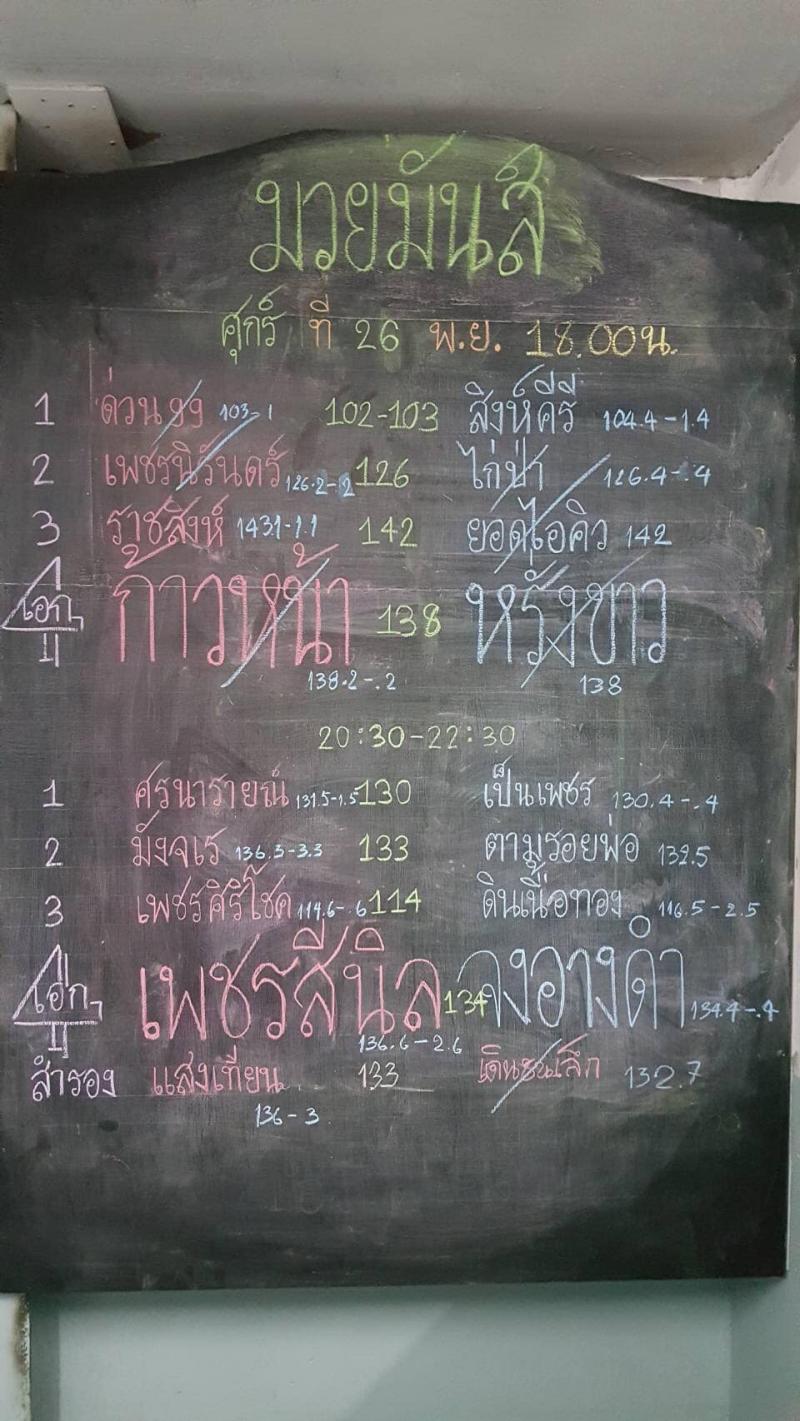 มวยมันส์
ศุกร์ ที่ 26 พ.ย. 18.00น.
1 ด่วน 99 103-1 102-103 สิงห์คีรี 104.4-1.4
2 เพชรนิรันดร์ 126.2-.2 126 ไก่ป่า 126.4-.4
3 ราชสิงห์ 143.1-1.1 142 ยอดไอคิว 142
เอก 1 ก้าวหน้า 138 หรั่งขาว
138.2-.2 138
20:30-22:30
1 ศรนารายณ์ 131.5-1.5 130 เป็นเพชร 130.4-.4
2 มังจเร 136.3-3.3 133 ตามรอยพ่อ 132.5
3 เพชรศิริโชค 114.6-.6 114 ดินเนื้อทอง 116.5-2.5
เอก 11 เพชรสีนิล 134 จงอางดำ 134.4-.4
136.6-2.6
สำรอง แสงเทียน 133 132.7
136-3